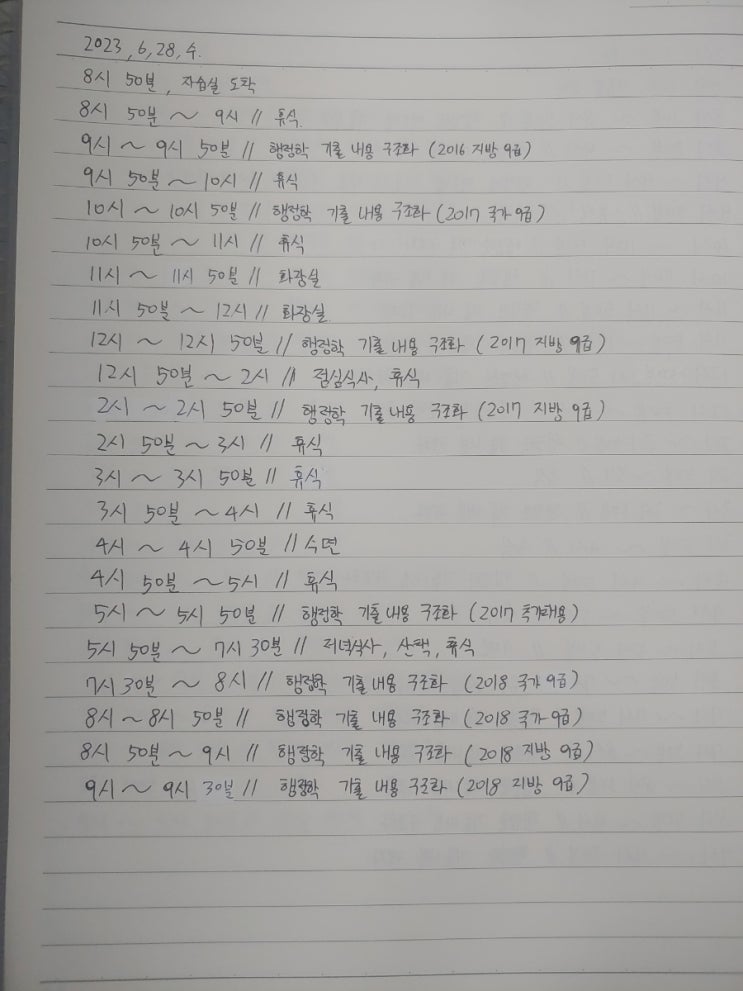 2023, 6, 28, 수.
8시 50분, 자습실 도착
8시 50분 ~ 9시 // 휴식.
9시 ~ 9시 50분 // 행정학 기출 내용 구조화 (2016 지방 9급)
9시 50분 ~ 10시 // 휴식
10시 ~ 10시 50분 // 행정학 기출 내용 구조화 (2017 국가 9급)
10시 50분 ~ 11시 // 휴식
11시 ~ 11시 50분 // 화장실
11시 50분 ~ 12시 // 화장실
12시 ~ 12시 50분 // 행정학 기출 내용 구조화 (2017 지방 9급)
12시 50분 ~ 2시 // 점심식사, 휴식
2시 ~ 2시 50분 // 행정학 기출 내용 구조화 (2017 지방 9급)
2시 50분 ~ 3시 // 휴식
3시 ~ 3시 50분 // 휴식
3시 50분 ~ 4시 // 휴식
4시 ~ 4시 50분 // 수면
4시 50분 ~ 5시 // 휴식
5시 ~ 5시 50분 // 행정학 기출 내용 구조화 (2017 추가채용)
5시 50분 ~ 7시 30분 // 저녁식사, 산책, 휴식
7시 30분 ~ 8시 // 행정학 기출 내용 구조화 (2018 국가 9급)
8시 ~ 8시 50분 // 행정학 기출 내용 구조화 (2018 국가 9급)
8시 50분 ~ 9시 // 행정학 기출 내용 구조화 (2018 지방 9급)
9시 ~ 9시 30분 // 행정학 기출 내용 구조화 (2018 지방 9급)